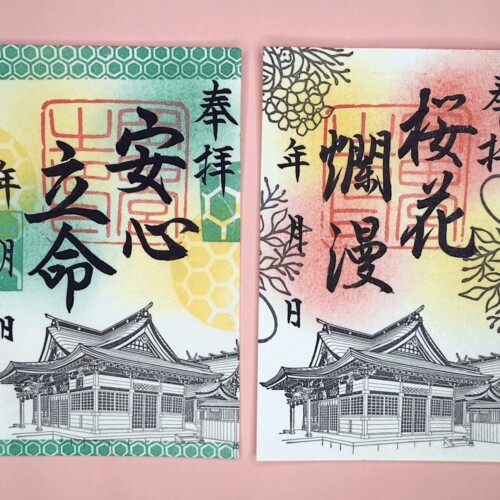 奉拝
安心
立命
年
月
日
奉拝
桜花
爛漫
年
月
日